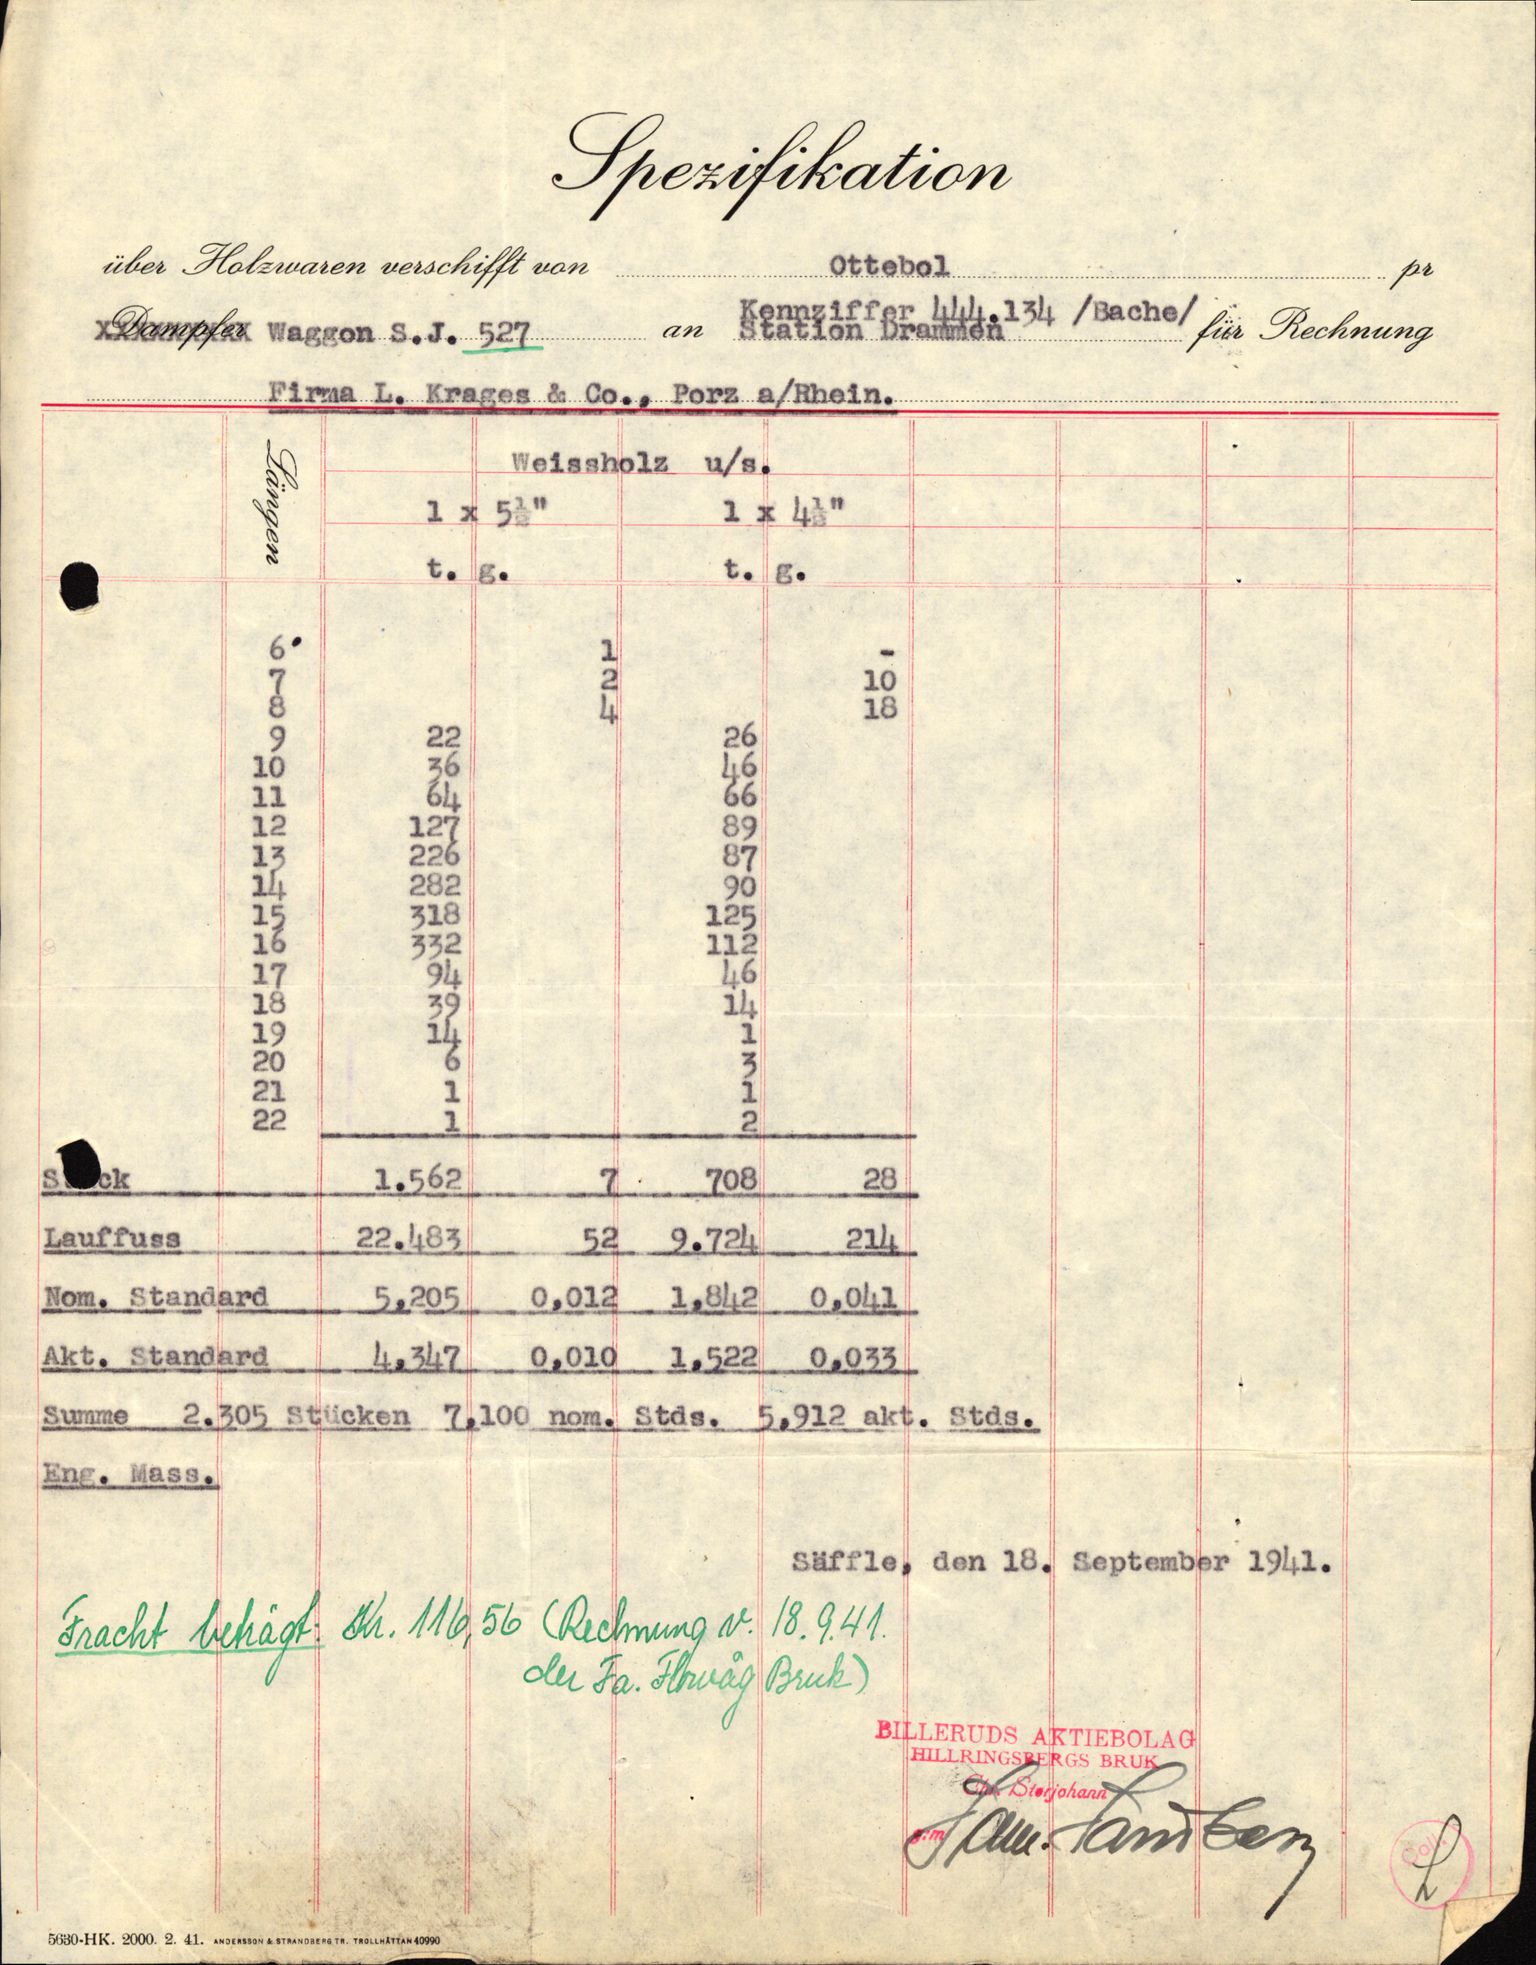 Spezifikation
über Holzwaren verschifft von Ottebol pr
Dampfer Waggon S.J. 527 an Kennziffer 444.134 /Bache/
Station Drammen für Rechnung
Firma L. Krages & Co., Porz a/Rhein.
Längen Weissholz u/s.
1 x 5½" 1 x 4½"
t. g. t. g.
6 1 -
7 2 10
8 4 18
9 22 26
10 36 46
11 64 66
12 127 89
13 226 87
14 282 90
15 318 125
16 332 112
17 94 46
18 39 14
19 14 1
20 6 3
21 1 1
22 1 2
S ck 1.562 7 708 28
Lauffuss 22.483 52 9.724 214
Nom. Standard 5,205 0,012 1,842 0,041
Akt. Standard 4,347 0,010 1,522 0,033
Summe 2.305 Stücken 7,100 nom. Stds. 5,912 akt. Stds.
Eng. Mass.
Säffle, den 18. September 1941.
Fracht beträgt: Kr. 116,56 (Rechnung v. 18.9.41.
der Fa. Florvåg Bruk)
BILLERUDS AKTIEBOLAG
HILLRINGSBERGS BRUK
Chr. Storjohann
Col.
5630-HK. 2000. 2. 41. ANDERSSON & STRANDBERG TR. TROLLHÄTTAN 40990